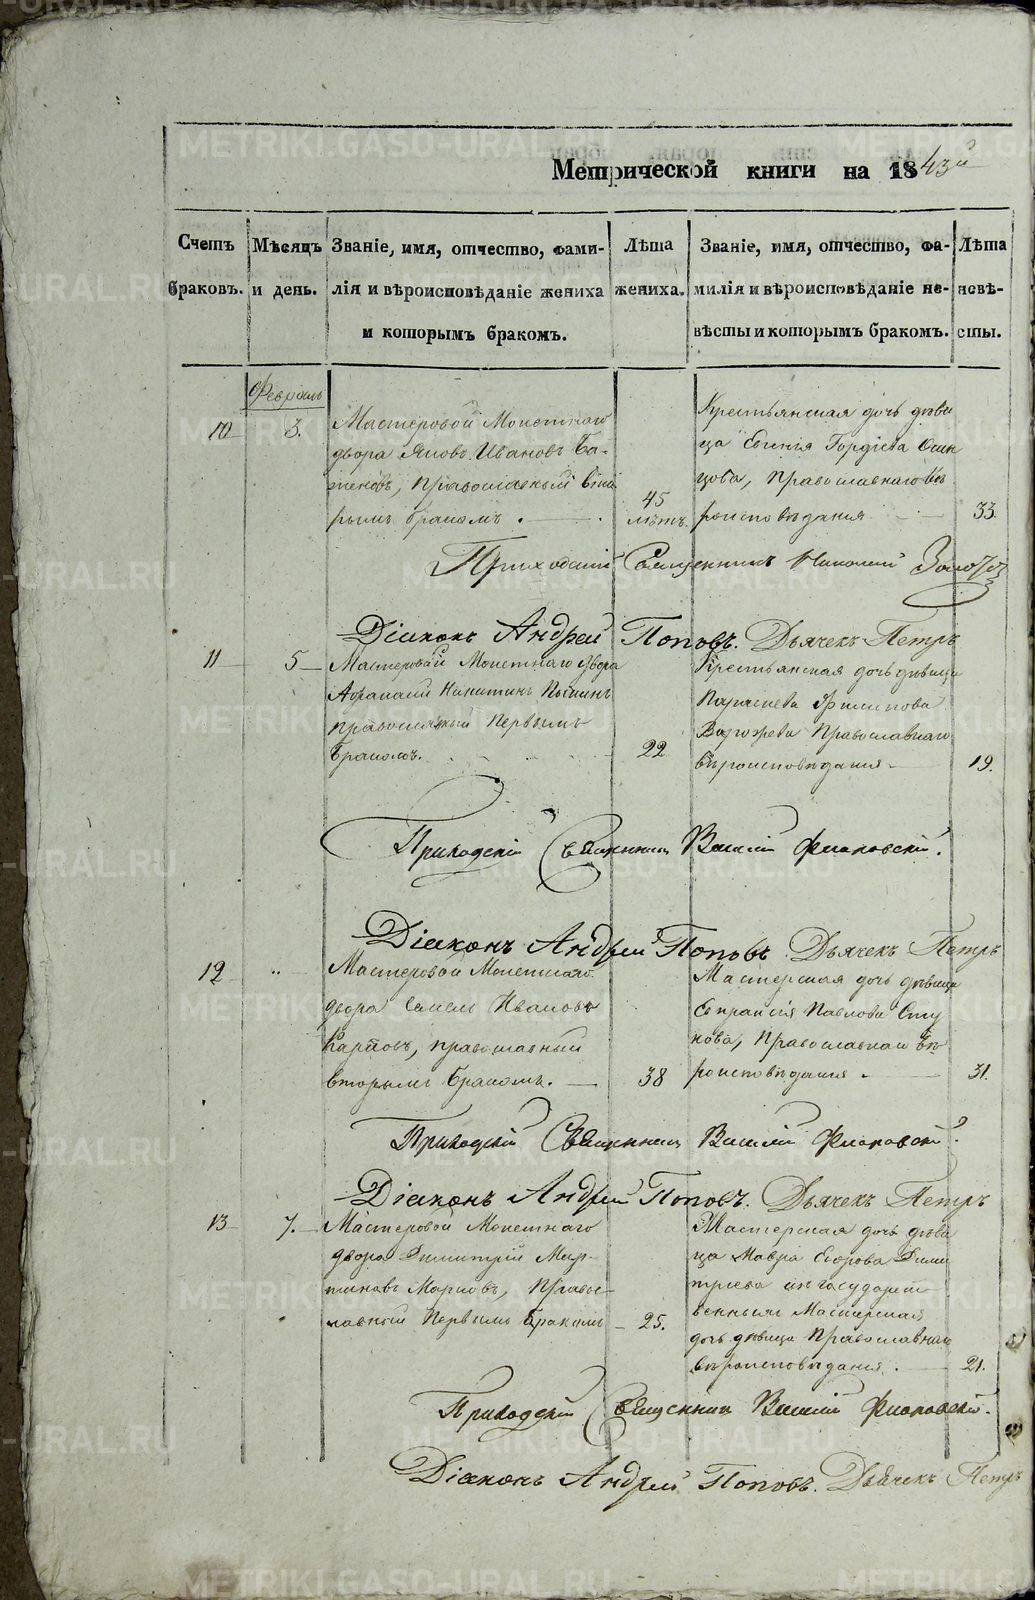 Метрической книги на 1843й
Счетъ браковъ.
Мѣсяцъ и день.
Званіе, имя, отчество, фами-
лія и вѣроисповѣданіе жениха
и которымъ бракомъ.
Лѣта
жениха.
Званіе, имя, отчество, фа-
милія и вѣроисповѣданіе не-
вѣсты и которымъ бракомъ.
Лѣта
невѣ-
сты.
Февраль
10
3.
Мастеровой Монетнаго
двора Яковъ Ивановъ Ба-
женовъ, православный
рымъ бракомъ.
45
лѣтъ.
Крестьянская дочь дѣви
ца Евгенія Гордѣева
православнаго вѣ
роисповѣданія
33.
Приходскій Священникъ Николай
Діаконъ Андрей Поповъ. Дьячекъ Петръ
11
5
Мастеровой Монетнаго двора
Афанасій Никитинъ
православный первымъ
бракомъ.
22
Крестьянская дочь дѣвица
Филипова
Православнаго
вѣроисповѣданія
19.
Приходскій Священникъ Василій Фіалковскій.
Діаконъ Андрей Поповъ. Дьячекъ Петръ
12
"
Мастеровой Монетнаго
двора Ивановъ
Карповъ, православный
вторымъ бракомъ.
38
Мастерская дочь дѣвица
Евпраксія Павлова
нова, Православнаго вѣ
роисповѣданія.
31.
Приходскій Священникъ Василій Фіалковскій.
Діаконъ Андрей Поповъ. Дьячекъ Петръ
13
7.
Мастеровой Монетнаго
двора Димитрій Мар-
тиновъ Марковъ, Правос-
лавный Первымъ бракомъ
25.
Мастерская дочь дѣви
ца Мавра Егорова Дими
тріева
Мастерская
дочь дѣвица Православнаго
вѣроисповѣданія.
21.
Приходскій Священникъ Василій Фіалковскій.
Діаконъ Андрей Поповъ. Дьячекъ Петръ
METRIKI.GASO-URAL.RU